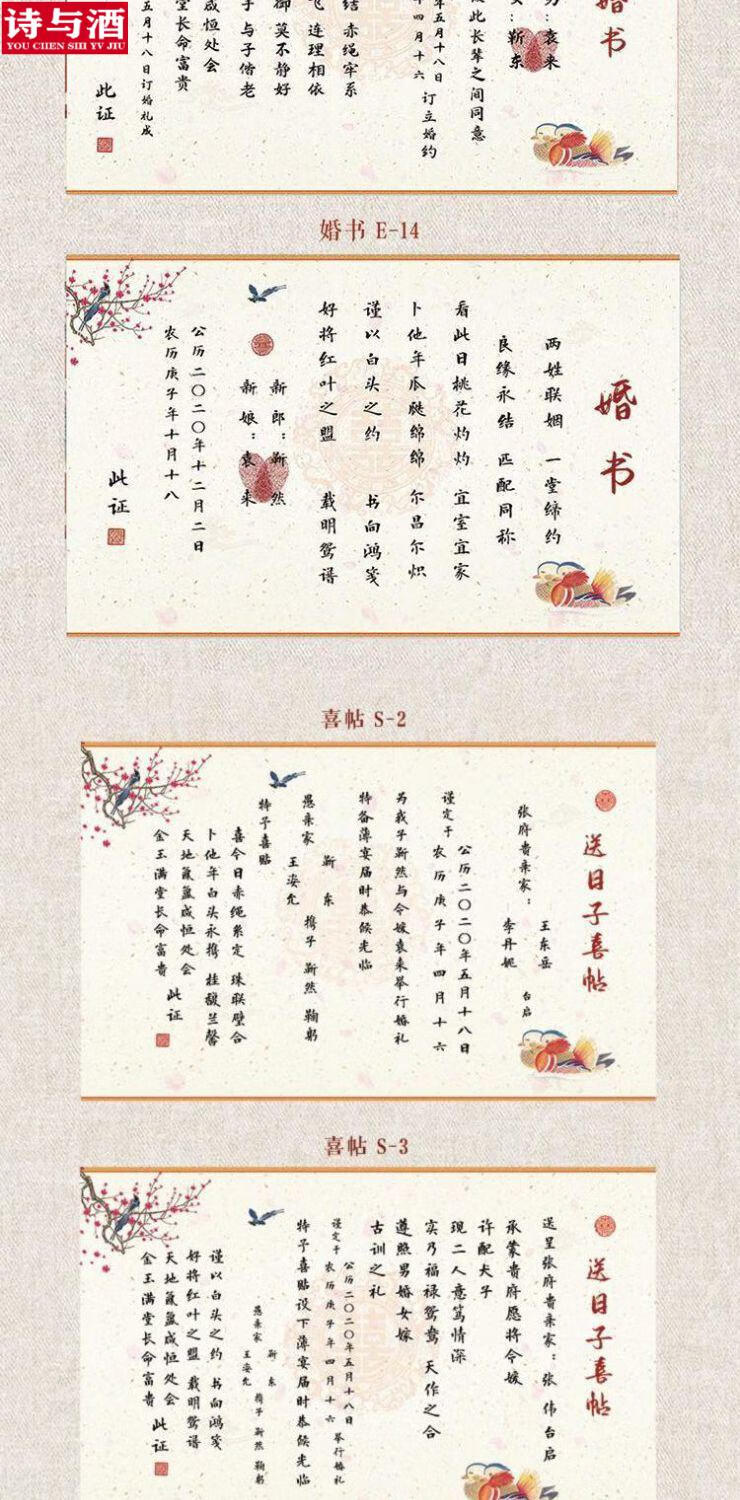 诗与酒
YOU CHEN SHI YV JIU
婚书
男：袁来
女：靳东
彼此长辈之间同意
年五月十八日 订立婚约
年四月十六
结 赤绳牢系
飞 连理相依
御 莫不静好
子 与子偕老
咸恒处会
堂长命富贵
五月十八日订婚礼成
此证
婚书 E-14
婚书
两姓联姻 一堂缔约
良缘永结 匹配同称
看此日桃花灼灼 宜室宜家
卜他年瓜瓞绵绵 尔昌尔炽
谨以白头之约 书向鸿笺
好将红叶之盟 载明鸳谱
新郎：靳然
新娘：袁来
公历二〇二〇年十二月二日
农历庚子年十月十八
此证
喜帖 S-2
送日子喜帖
张府贵亲家：
王东岳
李丹妮
台启
谨定于
公历二〇二〇年五月十八日
农历庚子年四月十六
为我子靳然与令嫒袁来举行婚礼
特备薄宴届时恭候光临
愚亲家 靳东
王姿允
携子 靳然 鞠躬
特予喜贴
喜今日赤绳系定 珠联璧合
卜他年白头永携 桂馥兰馨
天地氤氲咸恒处会
金玉满堂长命富贵
此证
喜帖 S-3
送日子喜帖
送呈张府贵亲家：张伟台启
承蒙贵府愿将令嫒
许配犬子
现二人意笃情深
实乃福禄鸳鸯 天作之合
遵照男婚女嫁
古训之礼
谨定于
公历二〇二〇年五月十八日
农历庚子年四月十六
举行婚礼
特予喜贴设下薄宴届时恭候光临
愚亲家 靳东
王姿允
携子 靳然 鞠躬
谨以白头之约 书向鸿笺
好将红叶之盟 载明鸳谱
天地氤氲咸恒处会
金玉满堂长命富贵
此证